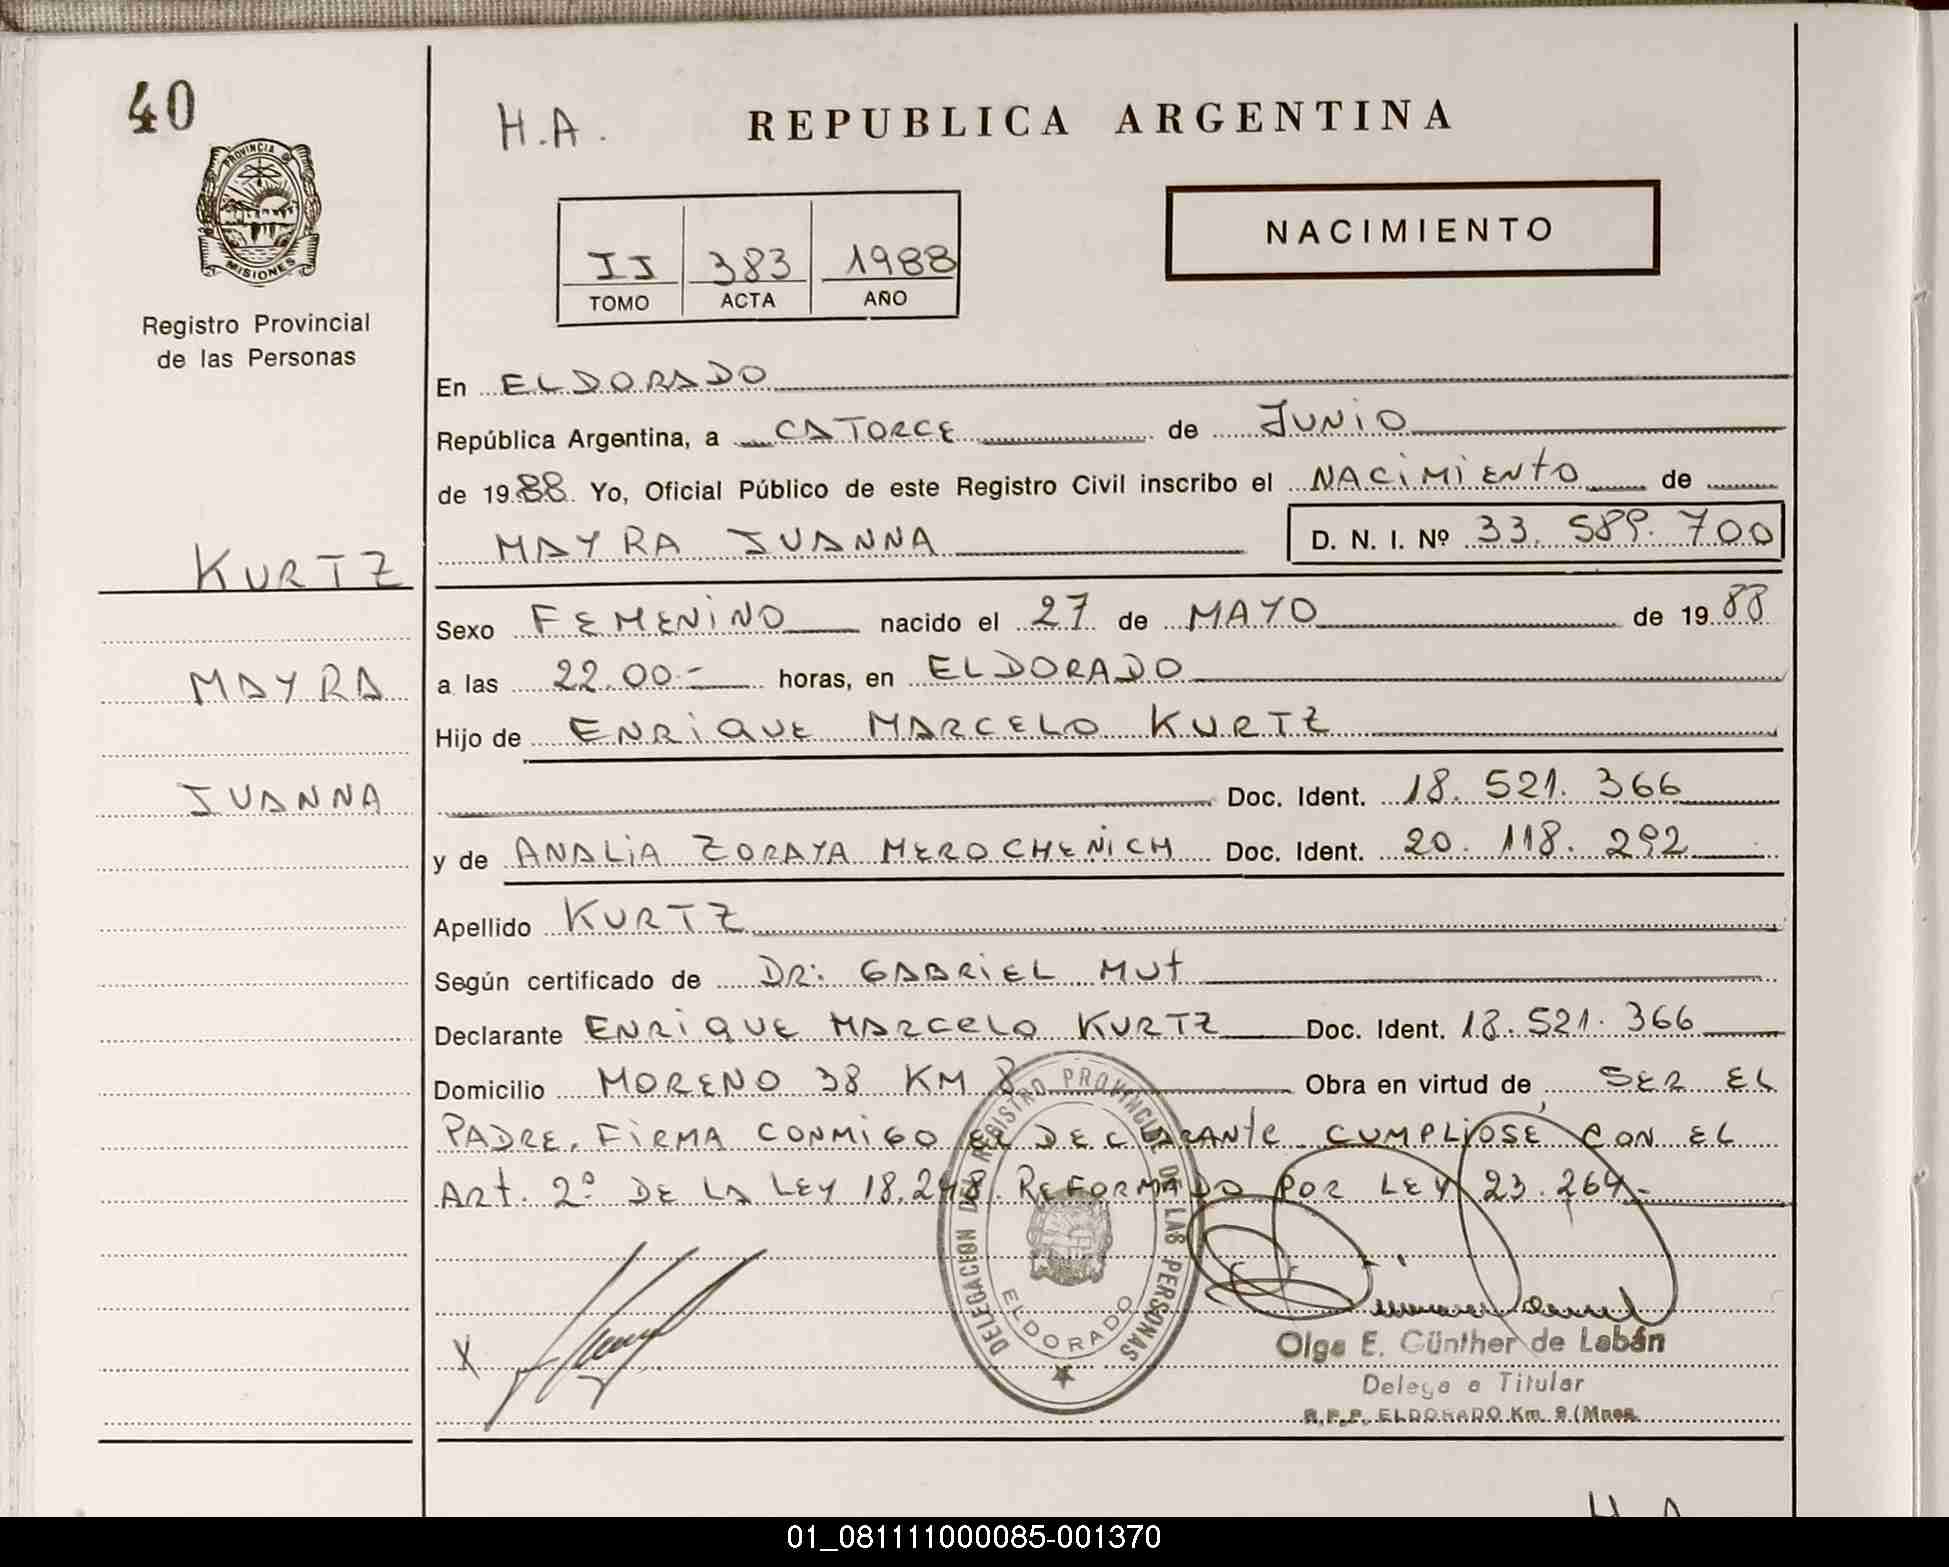 40
H.A.
REPUBLICA ARGENTINA
PROVINCIA DE
MISIONES
NACIMIENTO
II 383 1988
TOMO ACTA AÑO
Registro Provincial
de las Personas
En ELDORADO
República Argentina, a CATORCE de JUNIO
de 1988 Yo, Oficial Público de este Registro Civil inscribo el NACIMIENTO de
MAYRA IVANNA D. N. I. Nº 33.589.700
KURTZ
Sexo FEMENINO nacido el 27 de MAYO de 1988
MAYRA
a las 22.00- horas, en ELDORADO
Hijo de ENRIQUE MARCELO KURTZ
IVANNA
Doc. Ident. 18.521.366
y de ANALIA ZORAYA MEROCHENICH Doc. Ident. 20.118.292
Apellido KURTZ
Según certificado de DR: GABRIEL MUT
Declarante ENRIQUE MARCELO KURTZ Doc. Ident. 18.521.366
Domicilio MORENO 38 KM 8 Obra en virtud de SER EL
PADRE, FIRMA CONMIGO EL DECLARANTE CUMPLIOSE CON EL
ART. 2º DE LA LEY 18.248. REFORMADO POR LEY 23.264.-
DELEGACION DEL REGISTRO PROVINCIAL DE LAS PERSONAS
ELDORADO
X
Olga E. Günther de Labán
Delega a Titular
R.P.P. ELDORADO Km. 9 (Mnes.
H.A
01_081111000085-001370